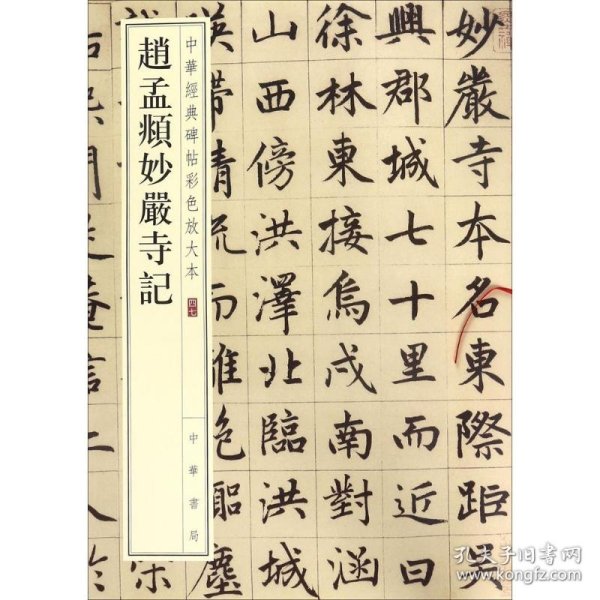 趙孟頫妙嚴寺記
中華經典碑帖彩色放大本
四七
中華書局
妙嚴寺本名東際距吳
興郡城七十里而近曰
徐林東接烏戍南對涵
山西傍洪澤北臨洪城
映帶清流而離絕囂塵
孔夫子旧书网
www.kongfz.com